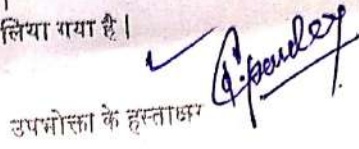 लिया गया है।
उपभोक्ता के हस्ताक्षर